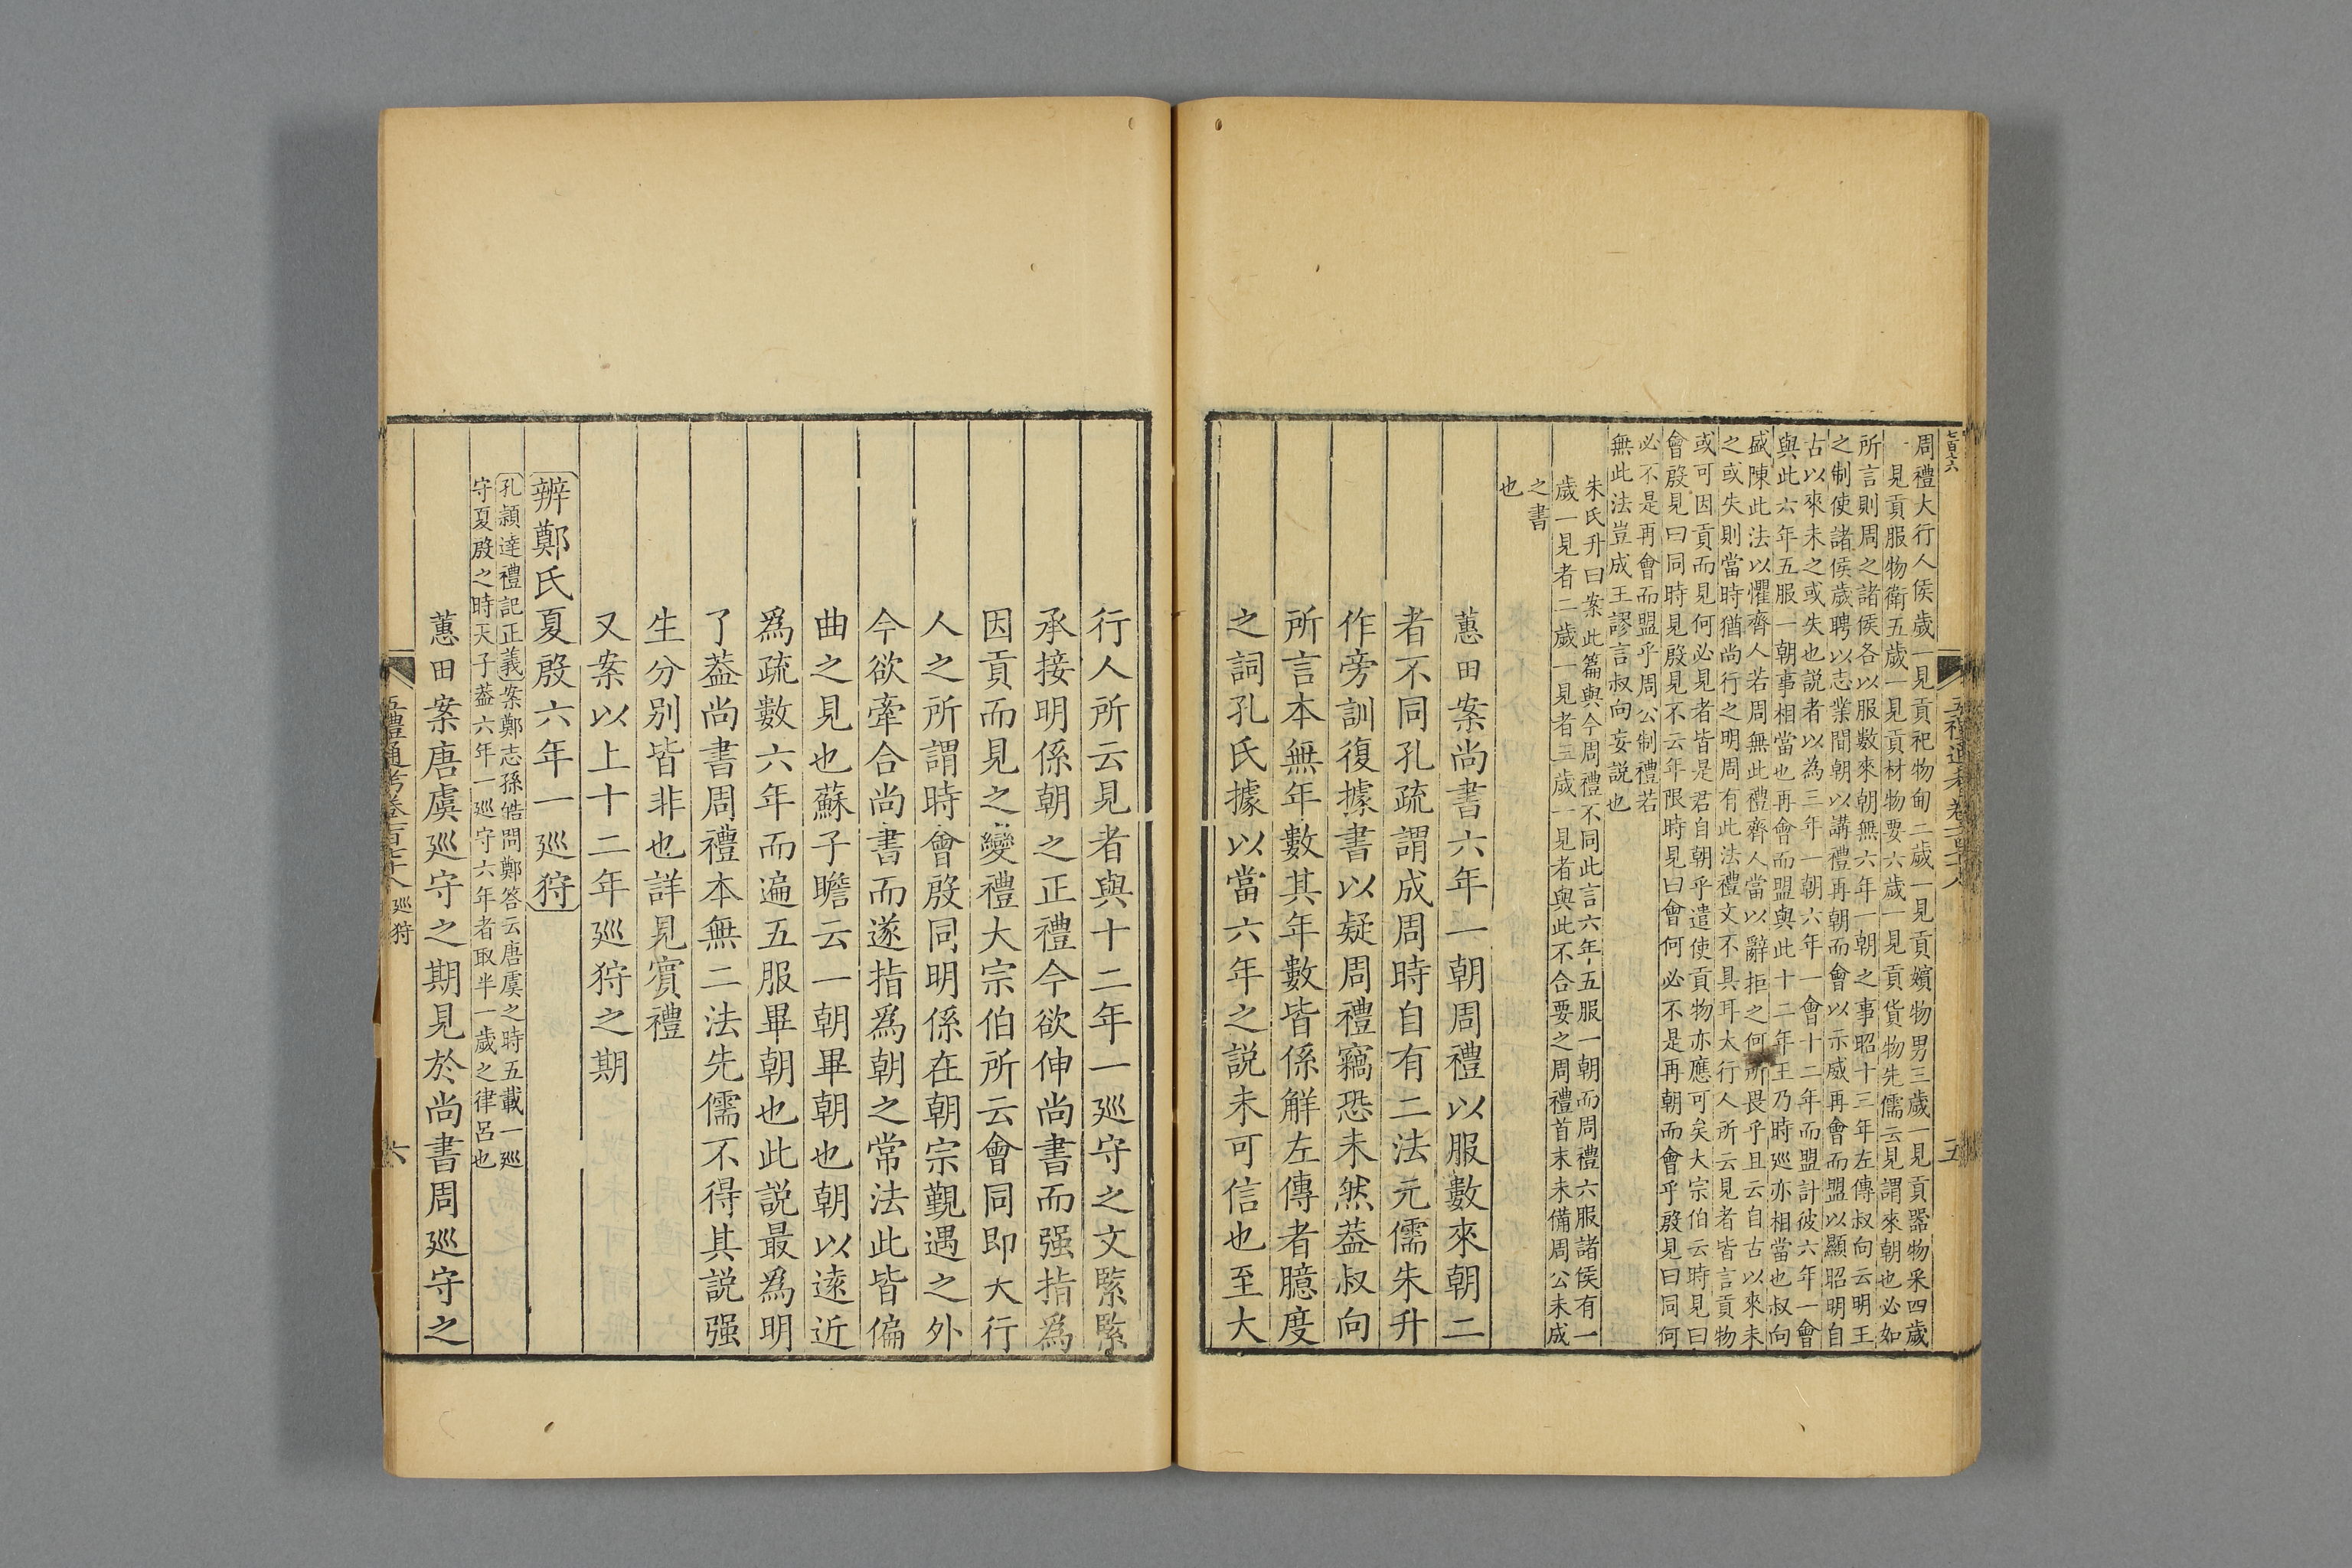 七百六
五禮通考卷一百七十八
五
周禮大行人侯歲一見貢祀物甸二歲一見貢嬪物男三歲一見貢器物采四歲
一見貢服物衛五歲一見貢材物要六歲一見貢貨物先儒云見謂來朝也必如
所言則周之諸侯各以服數來朝無六年一朝之事昭十三年左傳叔向云明王
之制使諸侯歲聘以志業間朝以講禮再朝而會以示威再會而盟以顯昭明自
古以來未之或失也説者以為三年一朝六年一會十二年而盟計彼六年一會
與此六年五服一朝事相當也再會而盟與此十二年王乃時廵亦相當也叔向
盛陳此法以懼齊人若周無此禮齊人當以辭拒之何所畏乎且云自古以來未
之或失則當時猶尚行之明周有此法禮文不具耳大行人所云見者皆言貢物
或可因貢而見何必見者皆是君自朝乎遣使貢物亦應可矣大宗伯云時見曰
會殷見曰同時見殷見不云年限時見曰會何必不是再朝而會乎殷見曰同何
必不是再會而盟乎周公制禮若
無此法豈成王謬言叔向妄説也
朱氏升曰案此篇與今周禮不同此言六年五服一朝而周禮六服諸侯有一
歲一見者二歲一見者三歲一見者與此不合要之周禮首末未備周公未成
之書
也
蕙田案尚書六年一朝周禮以服數來朝二
者不同孔疏謂成周時自有二法元儒朱升
作旁訓復據書以疑周禮竊恐未然葢叔向
所言本無年數其年數皆係解左傳者臆度
之詞孔氏據以當六年之説未可信也至大
行人所云見者與十二年一廵守之文緊緊
承接明係朝之正禮今欲伸尚書而强指爲
因貢而見之變禮大宗伯所云會同即大行
人之所謂時會殷同明係在朝宗覲遇之外
今欲牽合尚書而遂指爲朝之常法此皆偏
曲之見也蘇子瞻云一朝畢朝也朝以遠近
爲疏數六年而遍五服畢朝也此説最爲明
了葢尚書周禮本無二法先儒不得其説强
生分别皆非也詳見賓禮
又案以上十二年廵狩之期
辨鄭氏夏殷六年一廵狩
孔頴達禮記正義案鄭志孫皓問鄭答云唐虞之時五載一廵
守夏殷之時天子葢六年一廵守六年者取半一歲之律呂也
蕙田案唐虞廵守之期見於尚書周廵守之
五禮通考卷一百七十八 廵狩
六